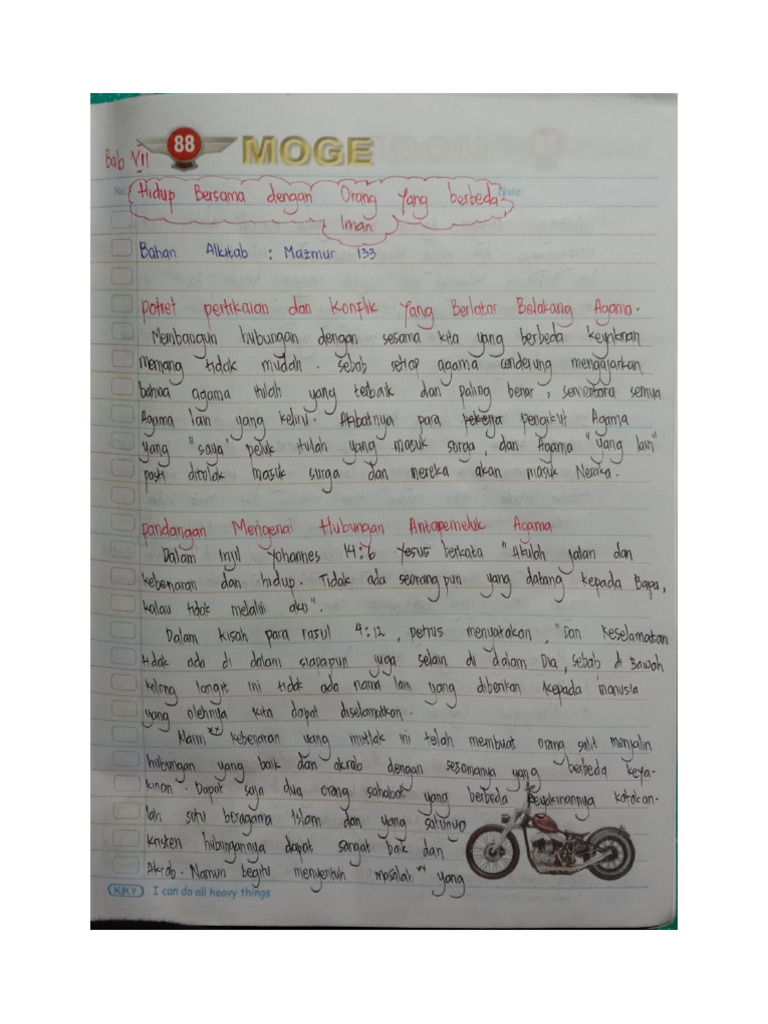 88 MOGE
Bab VII
No: Date:
Hidup Bersama dengan Orang Yang berbeda
Iman
Bahan Alkitab : Mazmur 133
potret pertikaian dan Konflik Yang Berlatar Belakang Agama.
Membangun hubungan dengan sesama kita yang berbeda keyakinan
memang tidak mudah. sebab setiap agama cenderung mengajarkan
bahwa agama inilah yang terbaik dan paling benar, sementara semua
Agama lain yang keliru. Akibatnya para pekerja pengikut Agama
yang "saya" peluk itulah yang masuk surga, dan Agama "yang lain"
pasti ditolak masuk surga dan mereka akan masuk Neraka.
pandangan Mengenai Hubungan Antarpemeluk Agama
Dalam Injil Yohannes 14:6 Yesus berkata "Akulah jalan dan
kebenaran dan hidup. Tidak ada seorang pun yang datang kepada Bapa,
kalau tidak melalui aku".
Dalam kisah para rasul 4:12, petrus menyatakan, "Dan Keselamatan
tidak ada di dalam siapapun juga selain di dalam Dia, sebab di Bawah
kolong langit ini tidak ada nama lain yang diberikan kepada manusia
yang olehnya kita dapat diselamatkan.
Klaim** kebenaran yang mutlak ini telah membuat orang sulit menjalin
hubungan yang baik dan akrab dengan sesamanya yang berbeda keya-
kinan. Dapat saja dua orang sahabat yang berbeda keyakinannya katakan-
lah satu beragama Islam dan yang satunya
kristen hubungannya dapat sangat baik dan
Akrab. Namun begitu menyentuh masalah** yang
KIKY I can do all heavy things